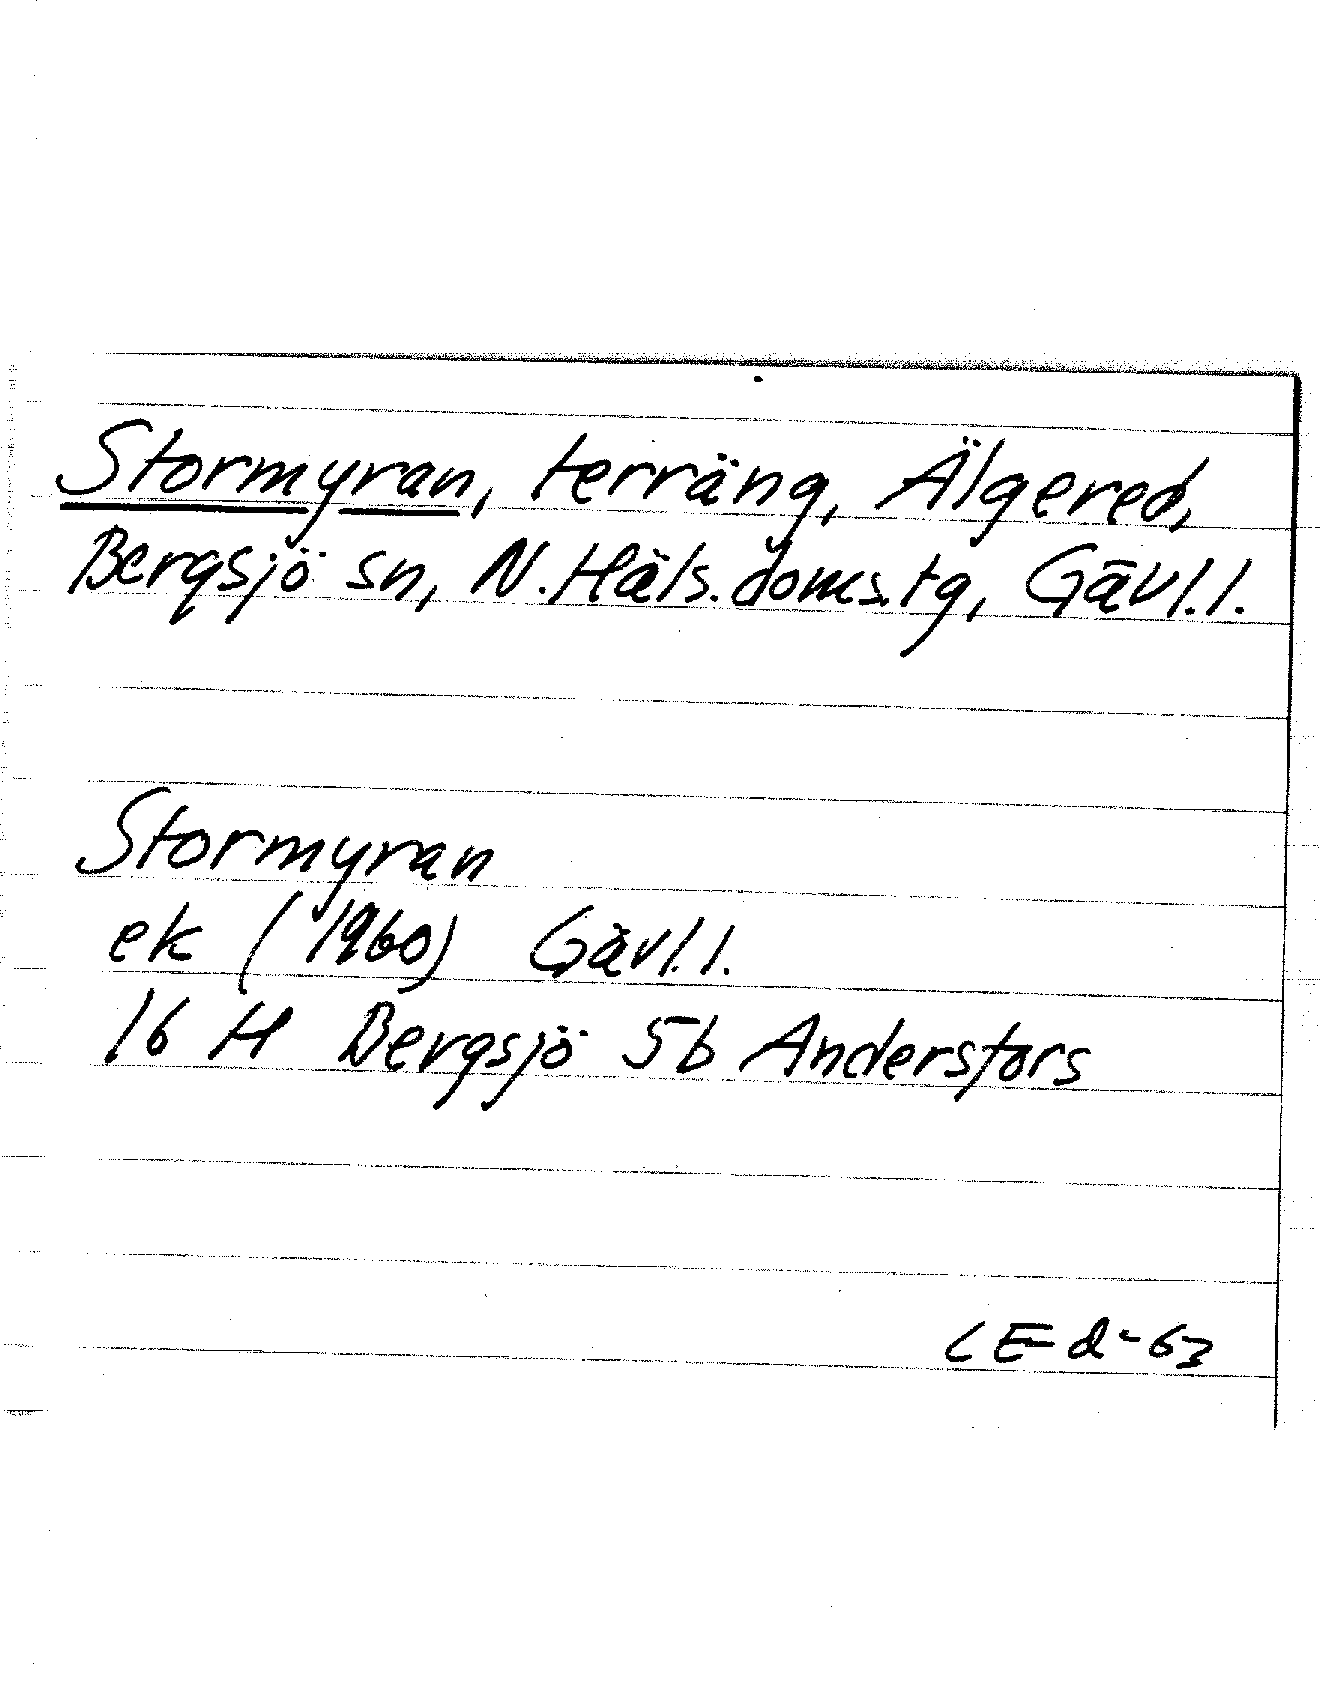 Stormyran, terräng, Älgered,
Bergsjö sn, N. Häls. doms. tg, Gävl. l.
Stormyran
ek (1960) Gävl. l.
16 H Bergsjö 5b Andersfors
LEd-63